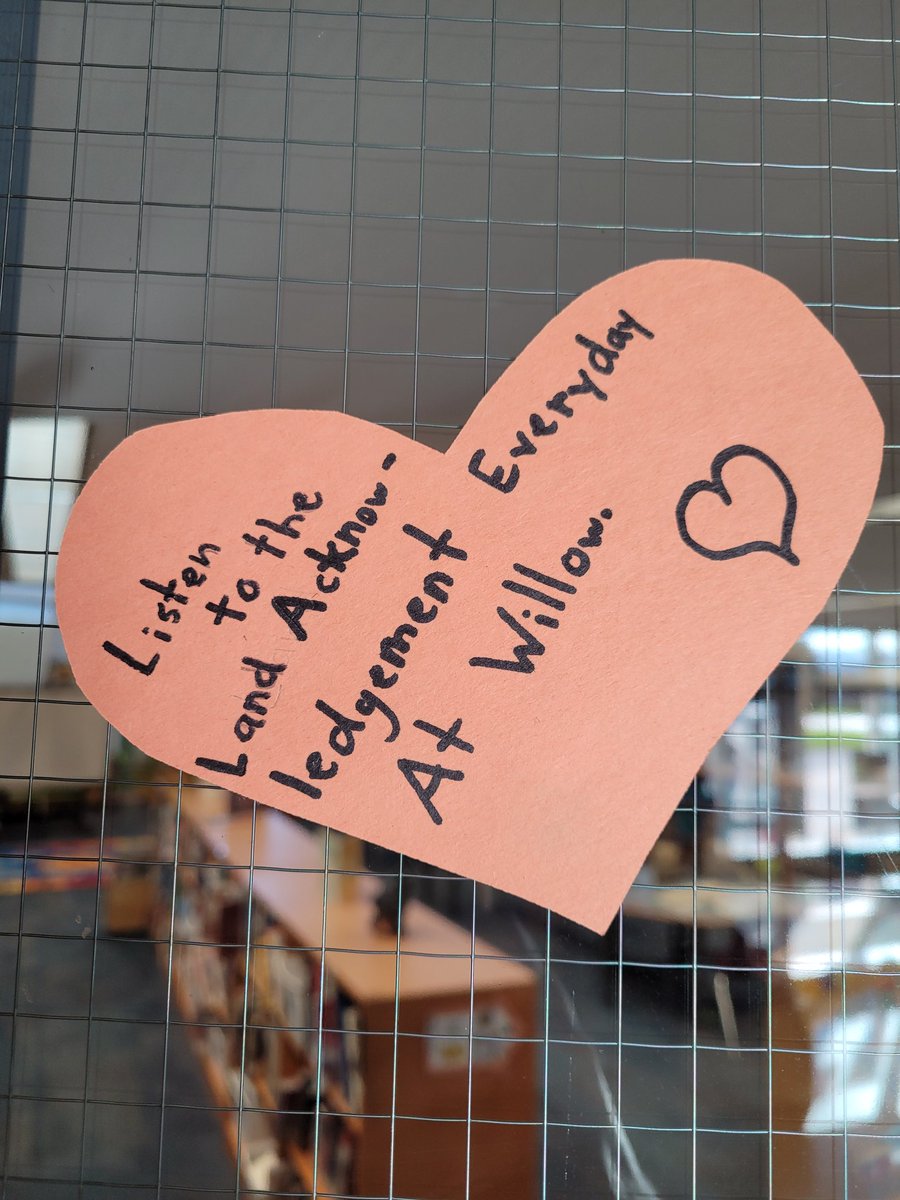 Listen
to the
Land Acknow-
ledgement Everyday
At Willow.